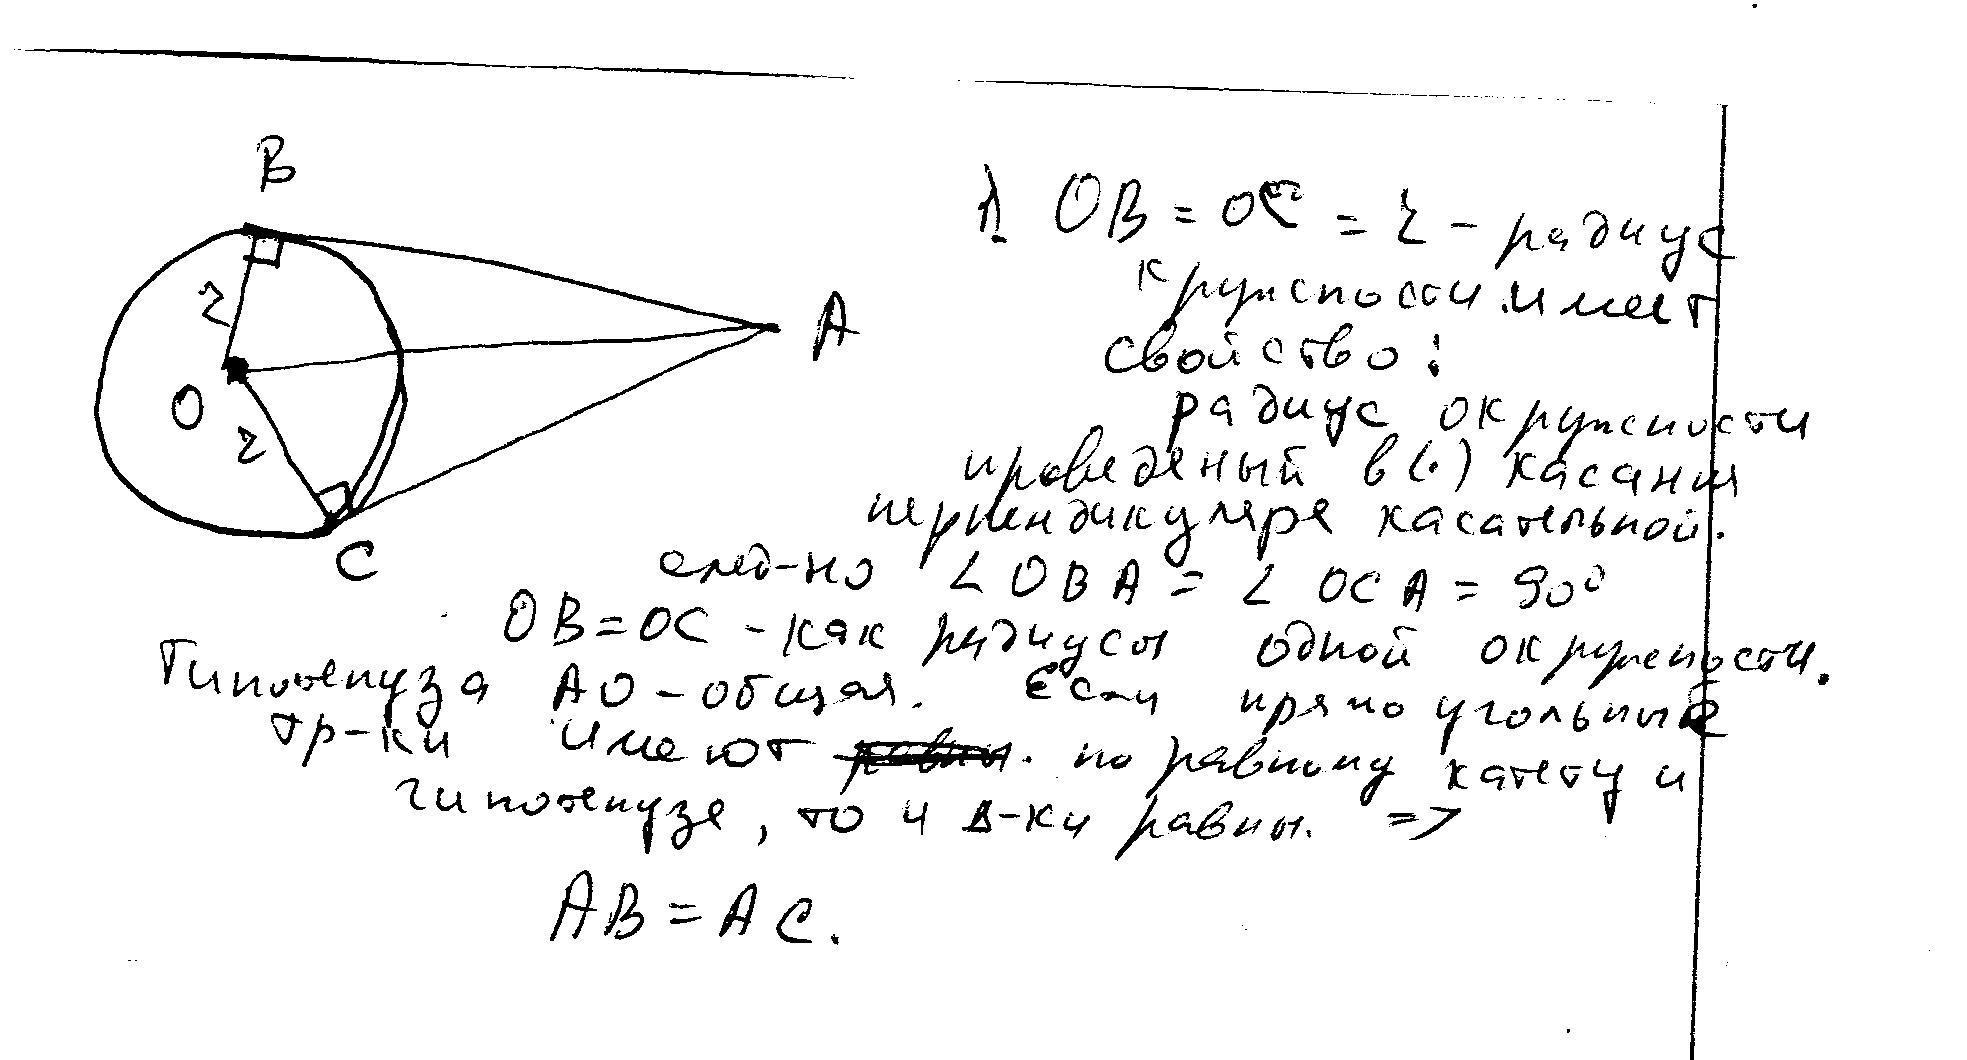 B
1. OB = OC = r - радиус
кружности имеет
свойство:
радиус окружности
проведеный в (·) касания
перпендикуляре касательной.
след-но ∠ OBA = ∠ OCA = 90°
OB = OC - как радиусы одной окружности.
Гипотенуза AO - общая. Если прямоугольные
тр-ки имеют равны. по равному катету и
гипотенузе, то и Δ-ки равны. =>
AB = AC.
A
r
O
r
C